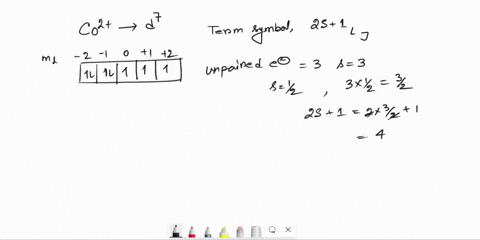 Co²⁺ → d⁷
Term symbol, 2S+1 L J
m₁ -2 -1 0 +1 +2
1L 1L 1 1 1
unpained e⊖ = 3 s=3
s=½, 3×½ = 3/2
2S+1 = 2×3/2+1
= 4